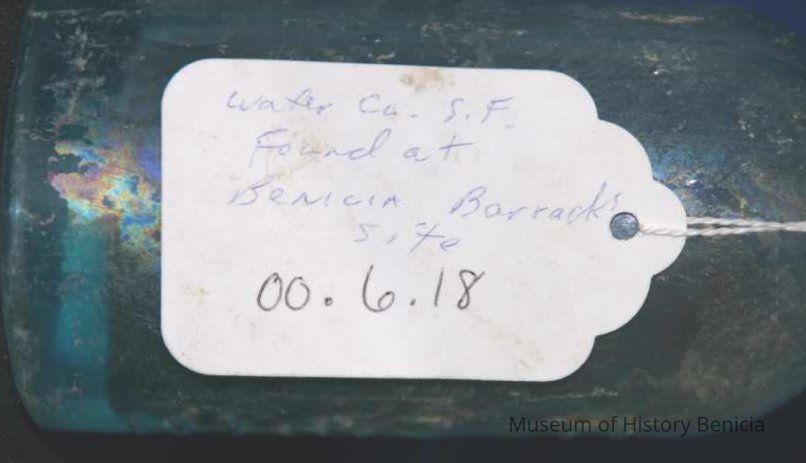 Water Co. S.F.
Found at
Benicia Barracks
Site
00.6.18
Museum of History Benicia